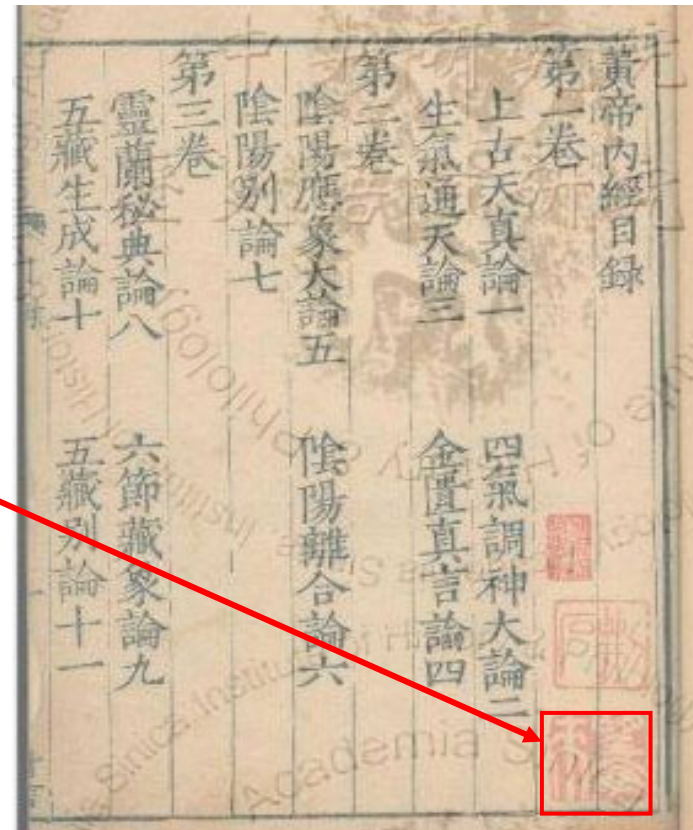 黃帝內經目録
第一卷
上古天真論一 四氣調神大論二
生氣通天論三 金匱真言論四
第二卷
陰陽應象大論五 陰陽離合論六
陰陽別論七
第三卷
靈蘭秘典論八 六節藏象論九
五藏生成論十 五藏別論十一
Academia Sinica